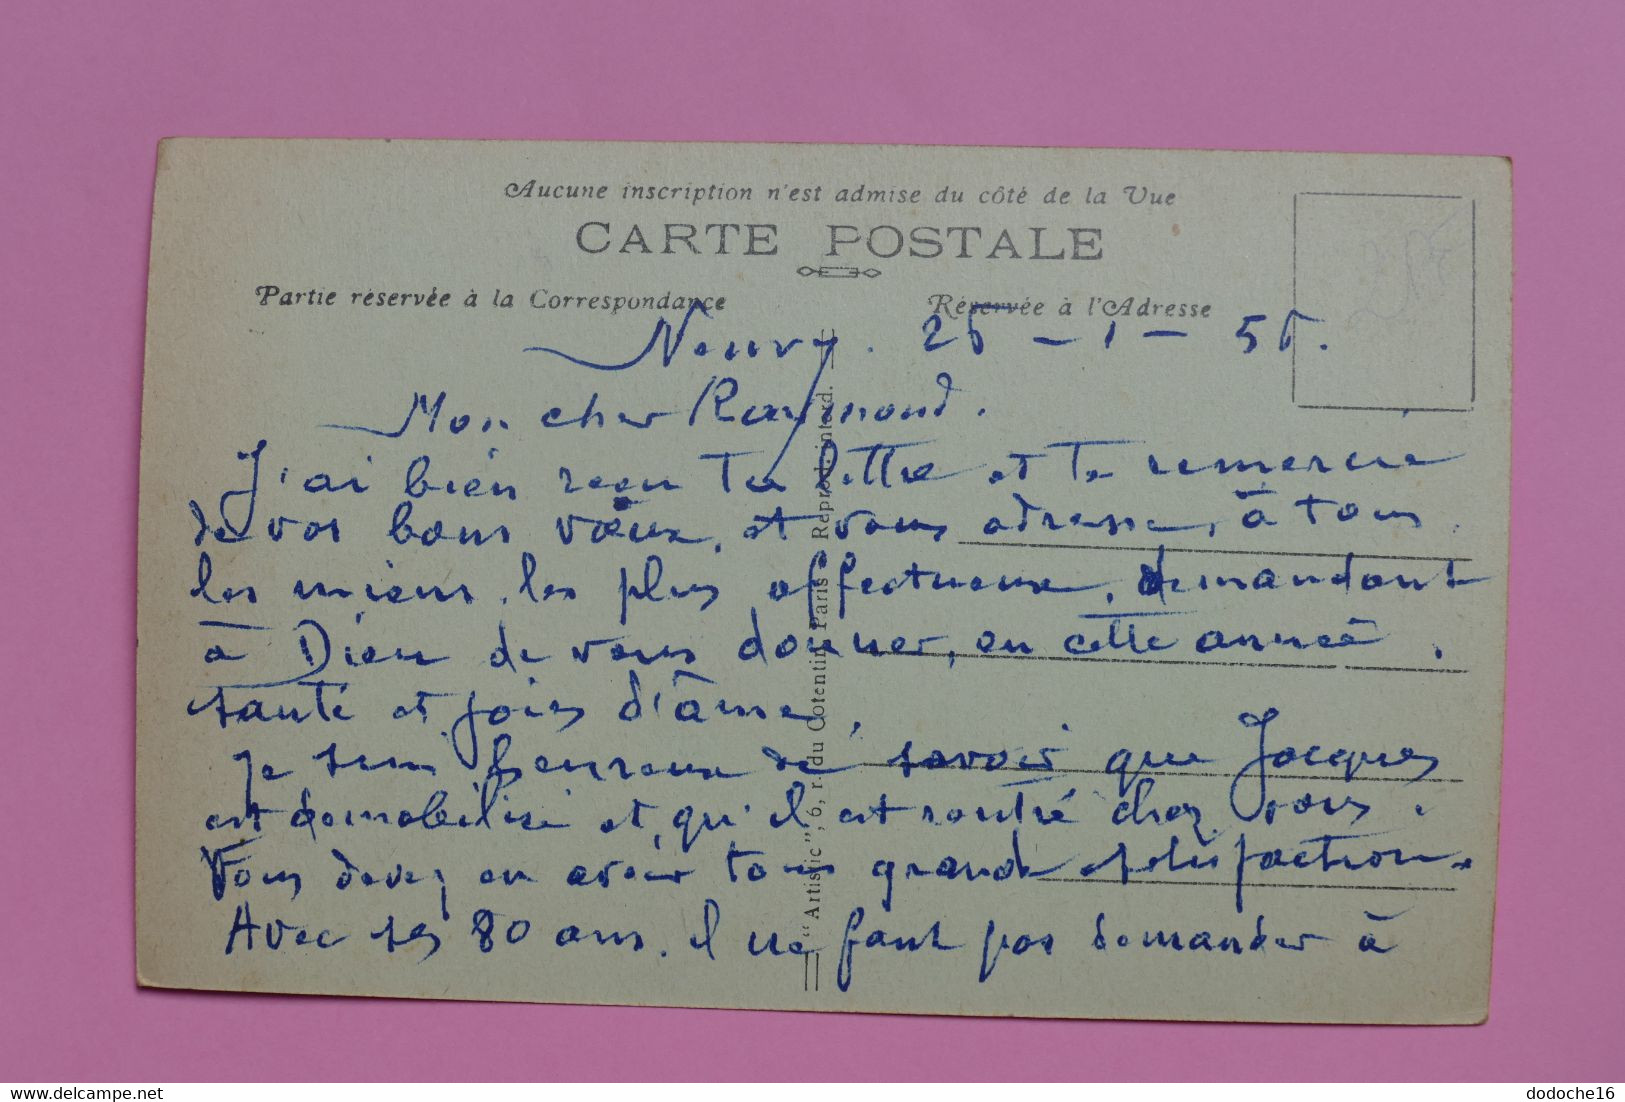 Aucune inscription n'est admise du côté de la Vue
CARTE POSTALE
Partie réservée à la Correspondance
Réservée à l'Adresse
Neuvy. 25 - 1 - 55.
Mon cher Raymond.
J'ai bien reçu ta lettre et te remercie
de vos bons vœux, et vous adresse, à tous
les miens, les plus affectueux, demandant
à Dieu de vous donner, en cette année,
santé et joies d'âme.
Je suis heureux de savoir que Jacques
est démobilisé et, qu'il est rentré chez vous.
Vous devez en avoir tous grande satisfaction.
Avec ses 80 ans, il ne faut pas demander à
"Artistic", 6, r. du Cotentin, Paris - Reprod. interd.
dodoche16